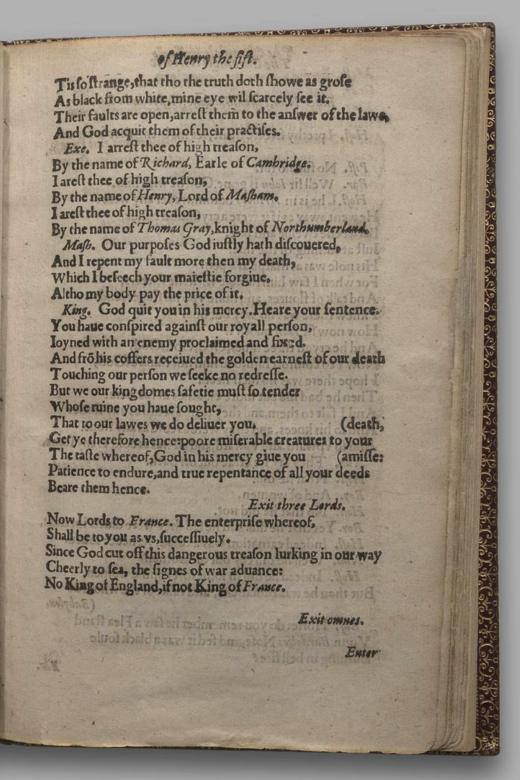 of Henry the fift.
Tis so strange, that tho the truth doth showe as grose
As black from white, mine eye wil scarcely see it.
Their faults are open, arrest them to the answer of the lawe,
And God acquit them of their practises.
Exe. I arrest thee of high treason,
By the name of Richard, Earle of Cambridge.
I arest thee of high treason,
By the name of Henry, Lord of Masham.
I arest thee of high treason,
By the name of Thomas Gray, knight of Northumberland.
Mash. Our purposes God iustly hath discouered,
And I repent my fault more then my death,
Which I beseech your maiestie forgiue,
Altho my body pay the price of it.
King. God quit you in his mercy. Heare your sentence.
You haue conspired against our royall person,
Ioyned with an enemy proclaimed and fixed.
And frō his coffers receiued the golden earnest of our death
Touching our person we seeke no redresse.
But we our kingdomes safetie must so tender
Whose ruine you haue sought,
That to our lawes we do deliuer you. (death,
Get ye therefore hence: poore miserable creatures to your
The taste whereof, God in his mercy giue you (amisse:
Patience to endure, and true repentance of all your deeds
Beare them hence.
Exit three Lords.
Now Lords to France. The enterprise whereof,
Shall be to you as vs, successiuely.
Since God cut off this dangerous treason lurking in our way
Cheerly to sea, the signes of war aduance:
No King of England, if not King of France.
Exit omnes.
Enter